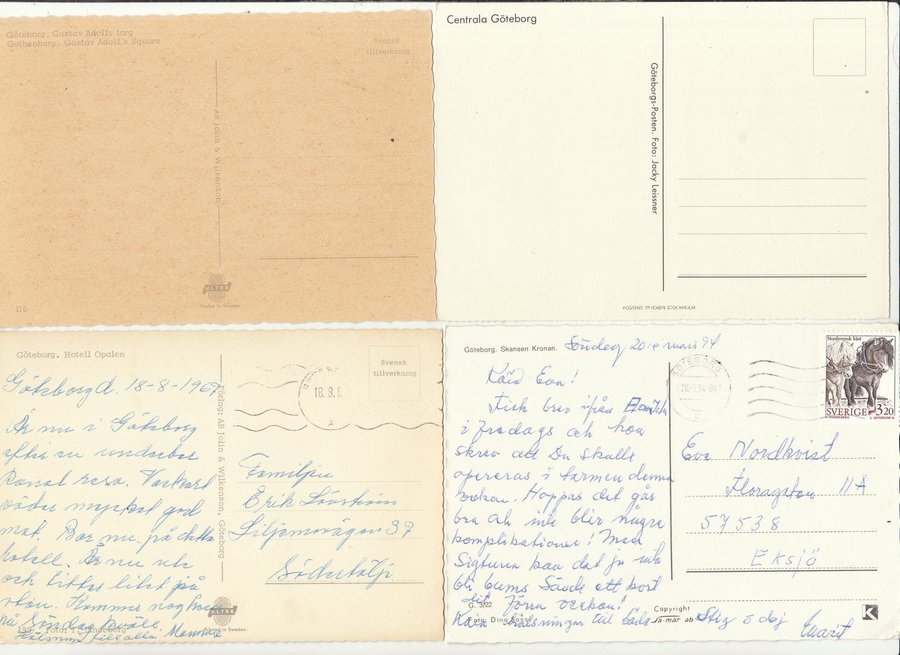 Göteborg. Gustav Adolfs torg
Gothenburg. Gustav Adolf's Square
Svensk
tillverkning
AB Jolin & Wilkenson
ULTRA
Printed in Sweden
116
Centrala Göteborg
Göteborgs-Posten. Foto: Jacky Leissner
POSTENS TRYCKERI STOCKHOLM
Göteborg. Hotell Opalen
Svensk
tillverkning
Göteborg d. 18-8-1969
Är nu i Göteborg
efter en underbar
kanal resa. Vackert
väder mycket god
mat. Bor nu på detta
hotell. Är nu ute
och tittar litet på
stan. Kommer nog hem
på Söndag kväll.
Hälsningar till alla Mamma
Foto: T. Lindeberg
Förlag: AB Jolin & Wilkenson, Göteborg
18.8.6
A
Familjen
Erik
Siljemovägen 37
Södertälje
ULTRA
Printed in Sweden
Göteborg. Skansen Kronan.
Söndag 20:e mars 94
Kära Eva!
Fick brev ifrån
i fredags och hon
skrev att Du skulle
opereras i tarmen denna
veckan. Hoppas det går
bra och inte blir några
komplikationer! Med
Sigurun kan det ju inte
bli bums Sände ett kort
dit förra veckan!
Kära hälsningar till båda
Stig o dej
Marit
G. 3/22
Foto Dino Sassi
Copyright
la mär ab
K
GÖTEBORG
20.-3.94
Nordsvensk häst
SVERIGE 3.20
Eva Nordkvist
Floragatan 11A
57538
Eksjö